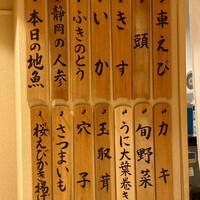 車えび
頭
きす
いか
ふきのとう
静岡の人参
本日の地魚
カキ
旬野菜
うに大葉巻き
玉取茸
穴子
さつまいも
桜えびかき揚げ